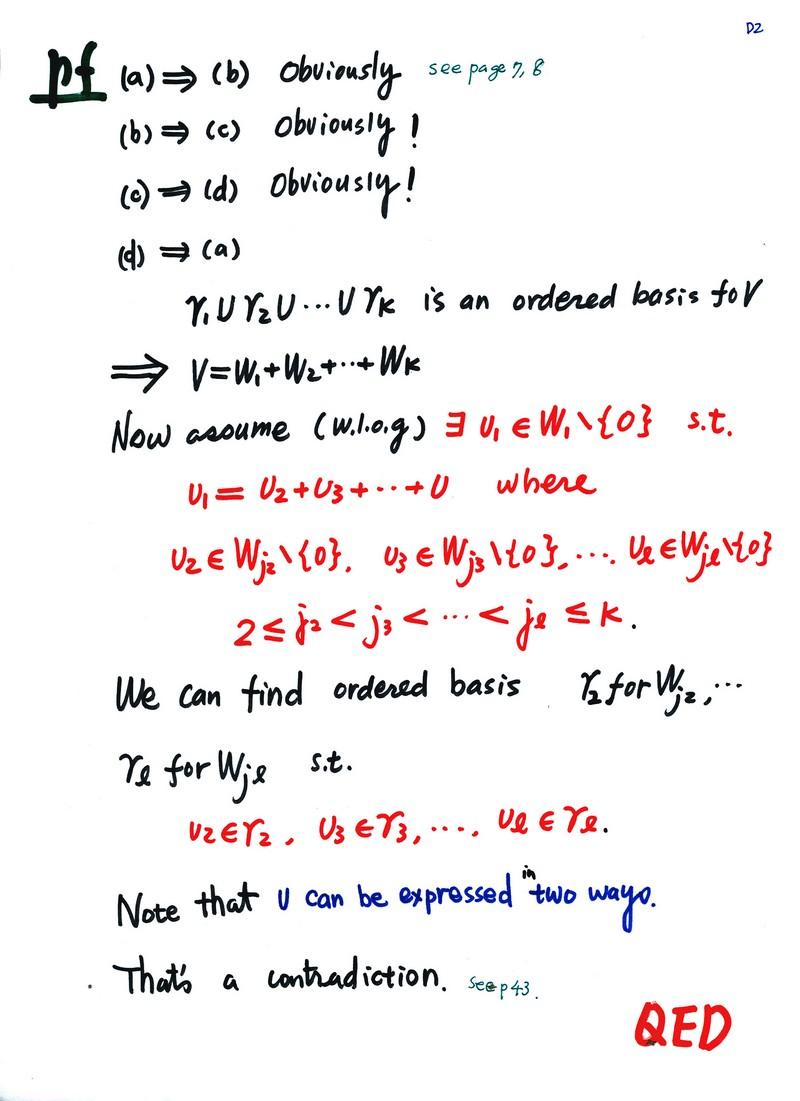 D2
pf (a) ⇒ (b) Obviously see page 7, 8
(b) ⇒ (c) Obviously!
(c) ⇒ (d) Obviously!
(d) ⇒ (a)
γ₁ ∪ γ₂ ∪ ⋯ ∪ γₖ is an ordered basis foV
⇒ V=W₁+W₂+⋯+Wₖ
Now assume (w.l.o.g) ∃ υ₁ ∈ W₁\{0} s.t.
υ₁ = υ₂+υ₃+⋯+υ where
υ₂ ∈ Wj₂\{0}, υ₃ ∈ Wj₃\{0}, ⋯. υℓ ∈ Wjℓ\{0}
2 ≤ j₂ < j₃ < ⋯ < jℓ ≤ k.
We can find ordered basis γ₂ for Wj₂, ⋯
γℓ for Wjℓ s.t.
υ₂ ∈ γ₂, υ₃ ∈ γ₃, ⋯, υℓ ∈ γℓ.
Note that υ can be expressed in two ways.
That's a contradiction. see p43.
QED